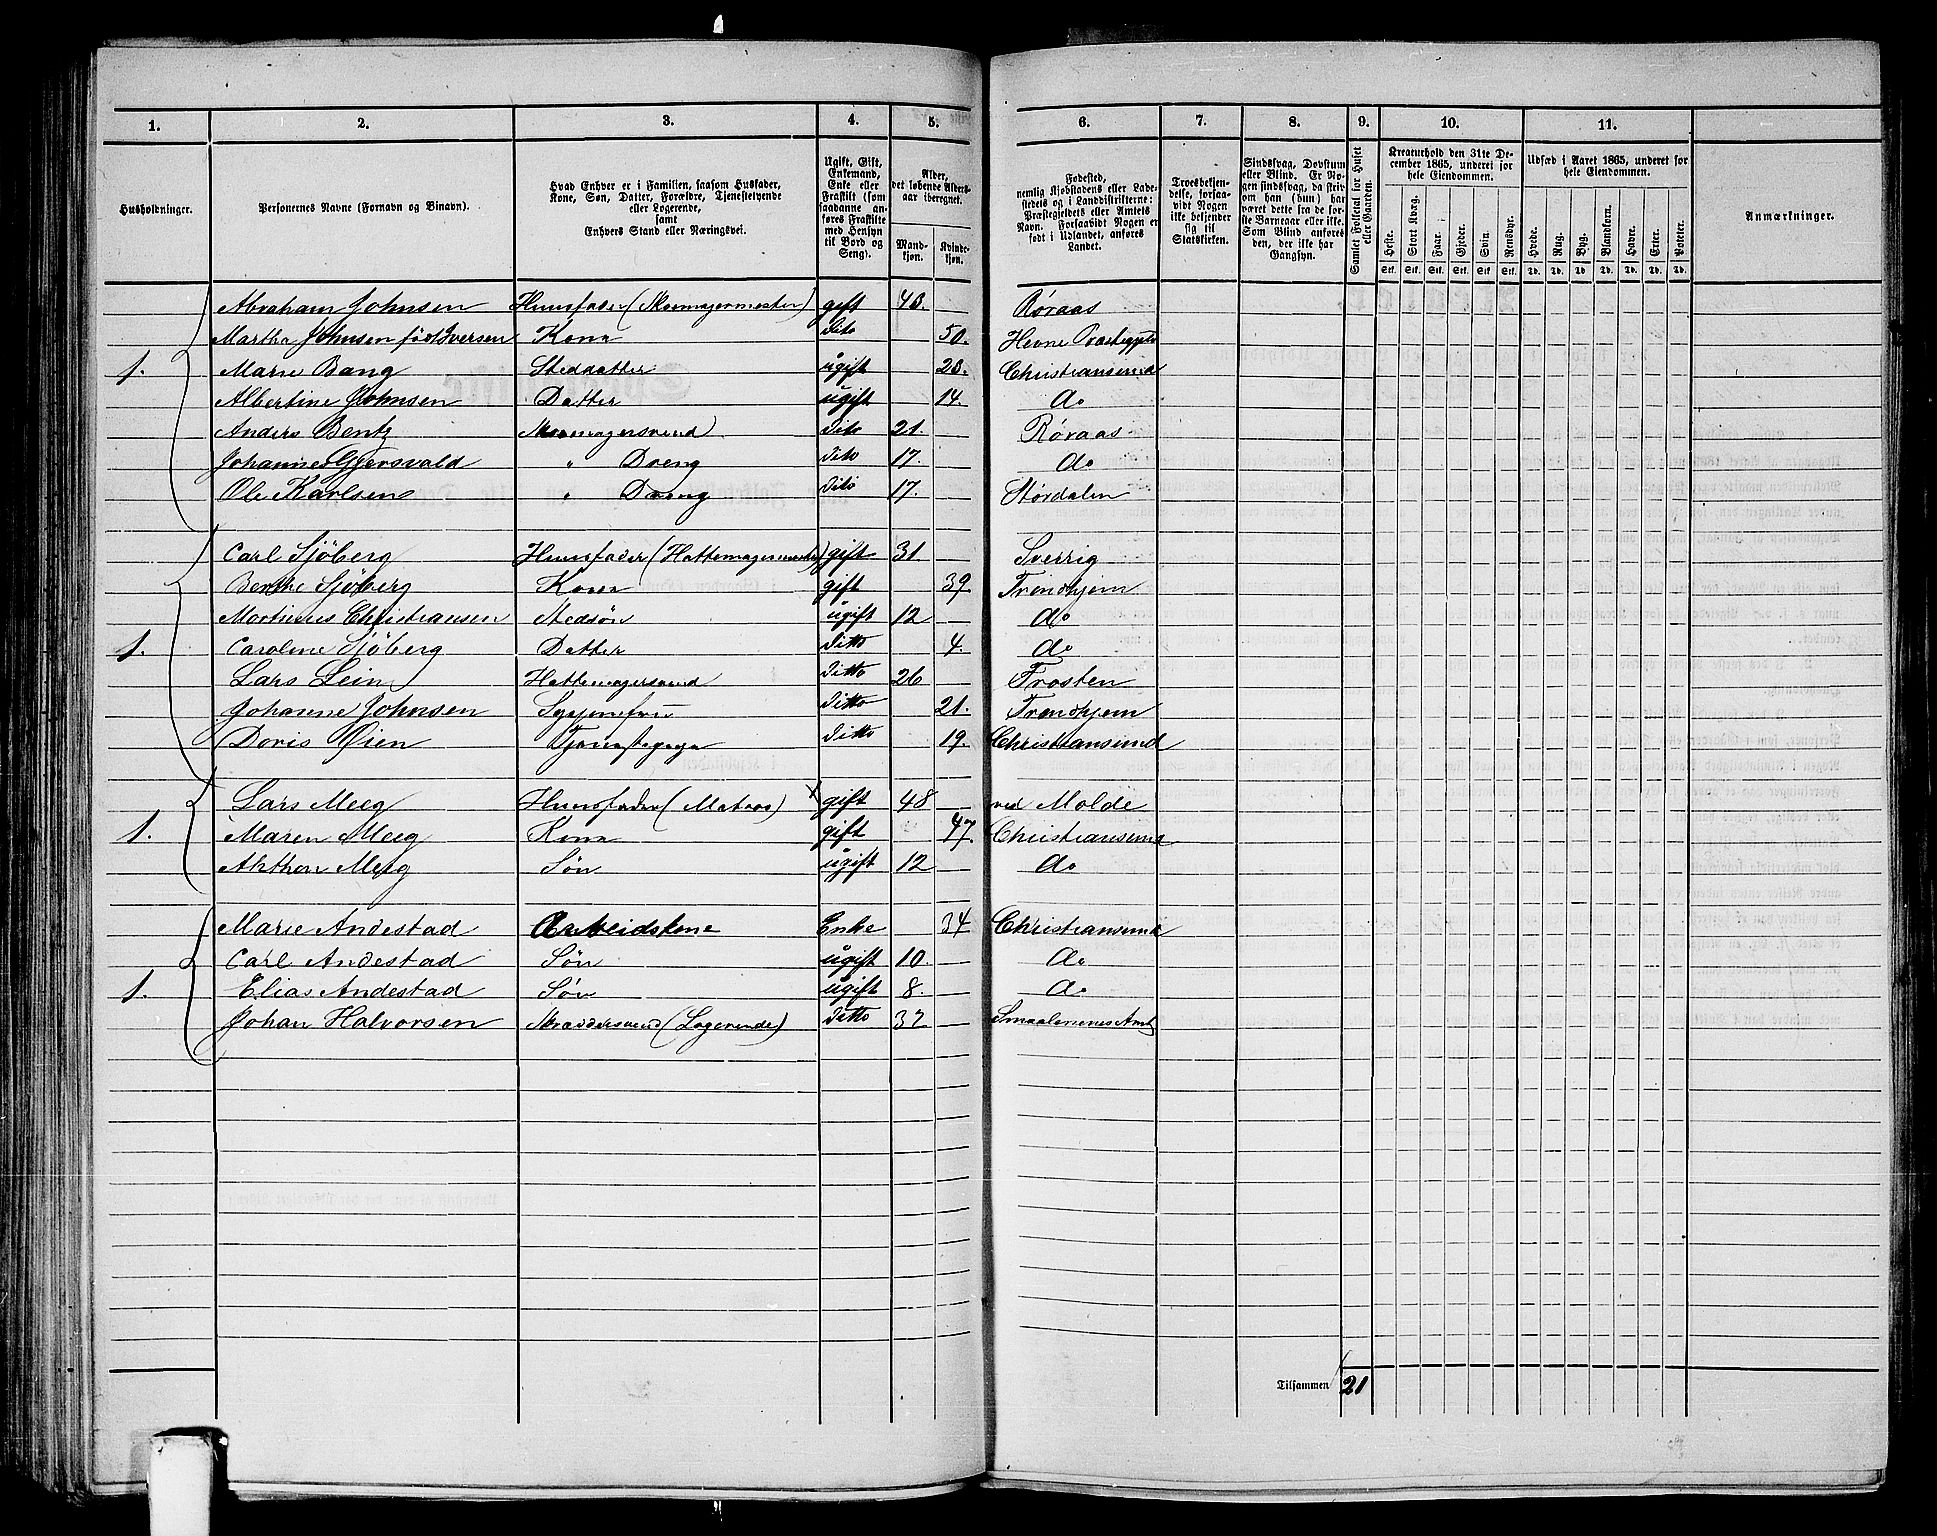 1. 2. 3. 4. 5. 6. 7. 8. 9. 10. 11.
Husholdninger.
Personernes Navne (Fornavn og Binavn).
Hvad Enhver er i Familien, saasom Husfader,
Kone, Søn, Datter, Forældre, Tjenestetyende
eller Logerende,
samt
Enhvers Stand eller Næringsvei.
Ugift, Gift,
Enkemand,
Enke eller
Fraskilt (som
saadanne an-
føres Fraskilte
med Hensyn
til Bord og
Seng).
Alder,
det løbende Alders-
aar iberegnet.
Mand-
kjøn.
Kvinde-
kjøn.
Fødested,
nemlig Kjøbstadens eller Lade-
stedets eller i Landdistrikterne:
Præstegjeldets eller Amtets
Navn. Forsaavidt Nogen er
født i Udlandet, anføres
Landet.
Troesbekjen-
delse, forsaa-
vidt Nogen
ikke bekjender
sig til
Statskirken.
Sindssvag, Døvstum
eller Blind. Er No-
gen sindssvag, da skriv
om han (hun) har
været dette fra de før-
ste Barneaar eller ikke.
Som Blind anføres
den, der ikke har
Gangsyn.
Samlet Folketal for Huset
eller Gaarden.
Kreaturhold den 31te De-
cember 1865, underet for
hele Eiendommen.
Heste. Stort Kvæg. Faar. Gjeder. Svin. Rensdyr.
Stk. Stk. Stk. Stk. Stk. Stk.
Udsæd i Aaret 1865, underet for
hele Eiendommen.
Hvede. Rug. Byg. Blandkorn. Havre. Erter. Poteter.
Td. Td. Td. Td. Td. Td. Td.
Anmærkninger.
Abraham Johnsen Huusfader (Skomagermester) gift 43. Røraas
Martha Johnsen fød Iversen Kone dito 50. Hevne
1. Marie Bang Steddatter ugift 23. Christiansund
Albertine Johnsen Datter ugift 14. do
Anders Bentz Skomagersvend dito 21. Røraas
Johannes Gjersvald " Dreng dito 17. do
Ole Karlsen " Dreng dito 17. Størdalen
Carl Sjöberg Huusfader (Hattemagermester) gift 31 Sverrig
Berthe Sjöberg Kone gift 39 Trondhjem
Mortinus Christiansen Stedsøn ugift 12 do
1. Caroline Sjöberg Datter Ditto 4. do
Lars Lein Hattemagersvend Ditto 26 Frosten
Johanne Johnsen Syejomfru Ditto 21. Trondhjem
Doris Øien Tjenestepige Ditto 19. Christiansund
Lars Meeg Huusfader (Matros) x gift 48 ved Molde
1. Maren Meeg Kone gift 47. Christiansund
Meeg Søn ugift 12 do
Marie Andestad Arbeidskone Enke 34 Christiansund
Carl Andestad Søn ugift 10. do
1. Elias Andestad Søn ugift 8. do
Johan Halvorsen Skræddersvend (Logerende) Ditto 37 Smaalenenes Amt
Tilsammen 21